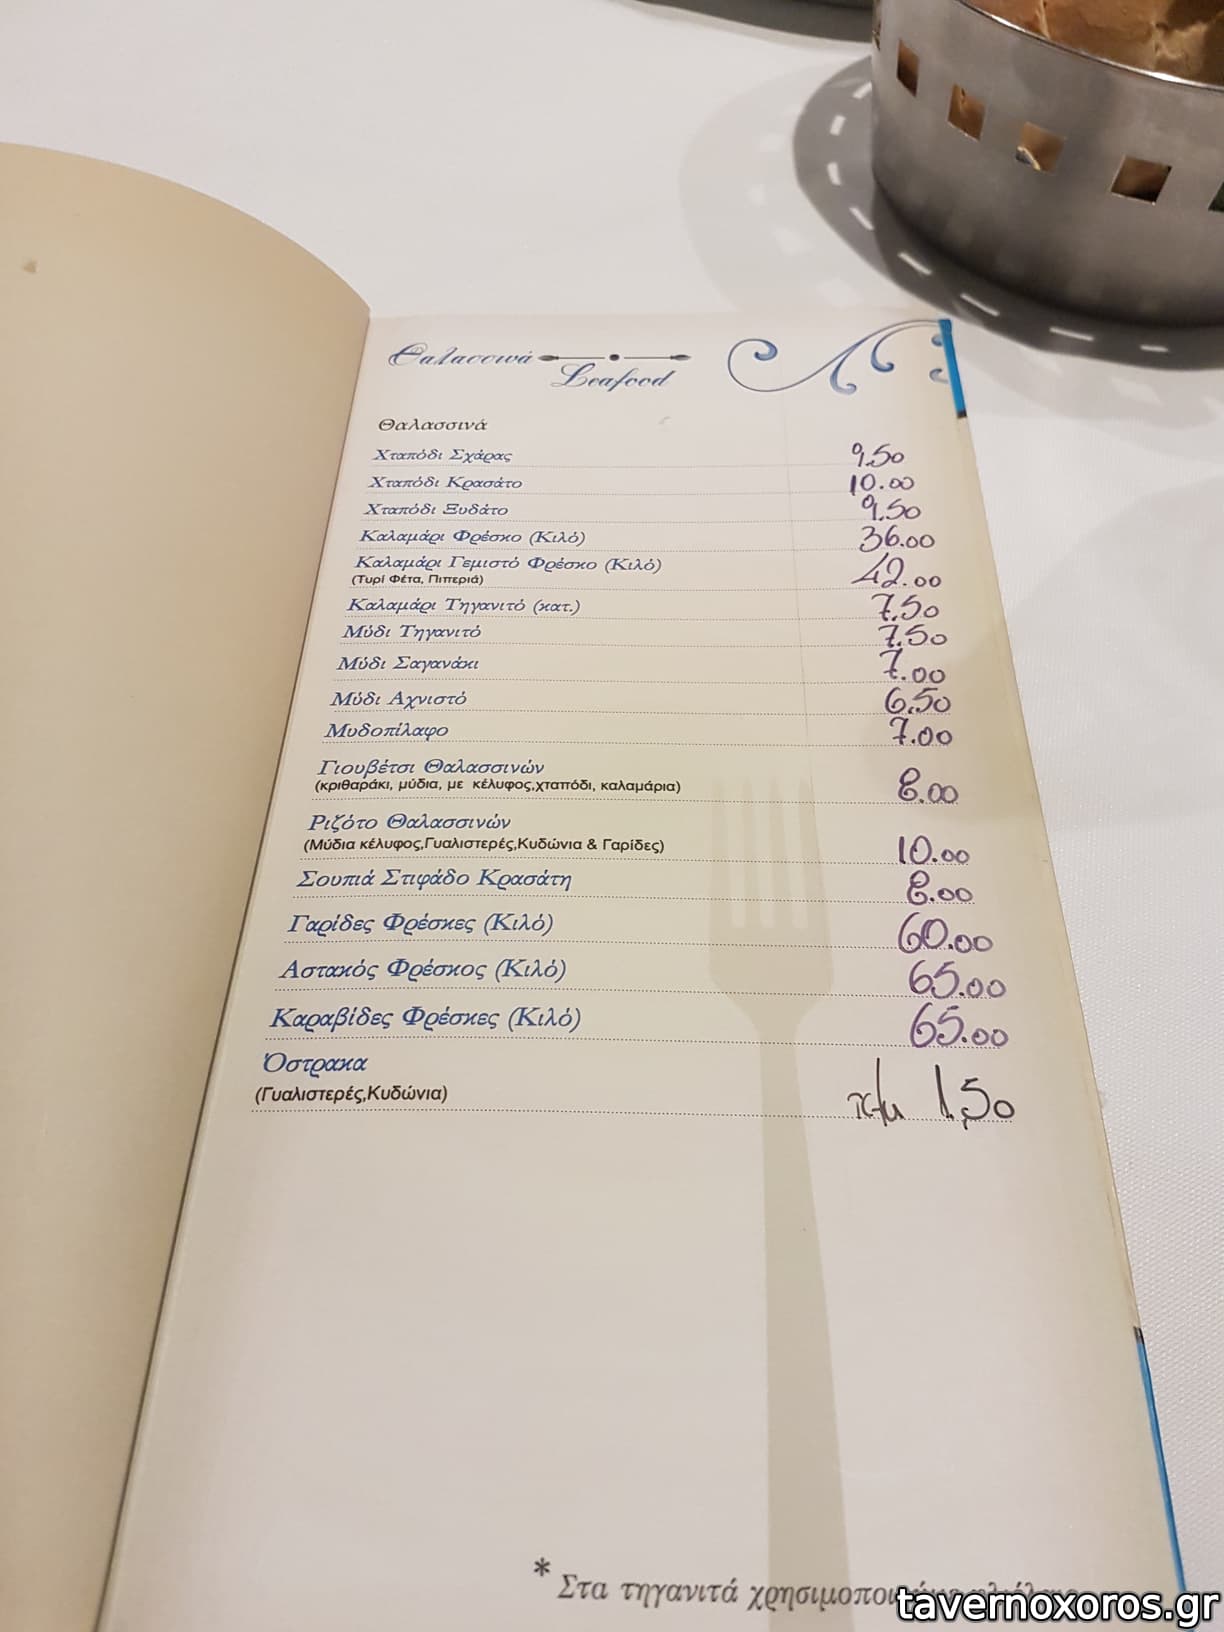 Θαλασσινά
Seafood
Θαλασσινά
Χταπόδι Σχάρας 9.50
Χταπόδι Κρασάτο 10.00
Χταπόδι Ξυδάτο 9.50
Καλαμάρι Φρέσκο (Κιλό) 36.00
Καλαμάρι Γεμιστό Φρέσκο (Κιλό) 42.00
(Τυρί Φέτα, Πιπεριά)
Καλαμάρι Τηγανιτό (κατ.) 7.50
Μύδι Τηγανιτό 7.50
Μύδι Σαγανάκι 7.00
Μύδι Αχνιστό 6.50
Μυδοπίλαφο 7.00
Γιουβέτσι Θαλασσινών 8.00
(κριθαράκι, μύδια, με κέλυφος,χταπόδι, καλαμάρια)
Ριζότο Θαλασσινών
(Μύδια κέλυφος,Γυαλιστερές,Κυδώνια & Γαρίδες) 10.00
Σουπιά Στιφάδο Κρασάτη 8.00
Γαρίδες Φρέσκες (Κιλό) 60.00
Αστακός Φρέσκος (Κιλό) 65.00
Καραβίδες Φρέσκες (Κιλό) 65.00
Όστρακα
(Γυαλιστερές,Κυδώνια) τεμ 1,50
* Στα τηγανιτά
tavernoxoros.gr